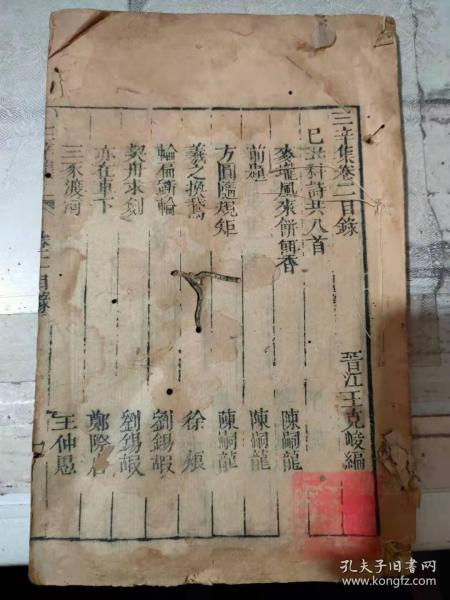 三辛集卷二目錄
晉江王克峻編
科詩共八首
麥壠風來餅餌香 陳嗣龍
前題 陳嗣龍
方圓隨規矩 陳嗣龍
羲之換鵞 徐
輪扁斵輪 劉錫嘏
契舟求劍 劉錫嘏
亦在車下 鄭際
三豕渡河 王仲愚
目錄
孔夫子旧书网
www.kongfz.com